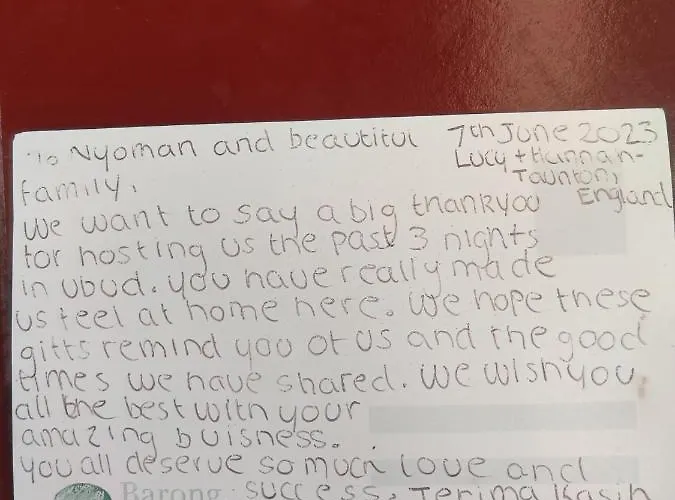 To Nyoman and beautiful
7th June 2023
Lucy + Hannah -
Taunton,
England
family,
We want to say a big thankyou
for hosting us the past 3 nights
in Ubud. you have really made
us feel at home here. We hope these
gifts remind you of us and the good
times we have shared. We wish you
all the best with your
amazing buisness.
you all deserve so much love and
Barong
success. Terima Kasih